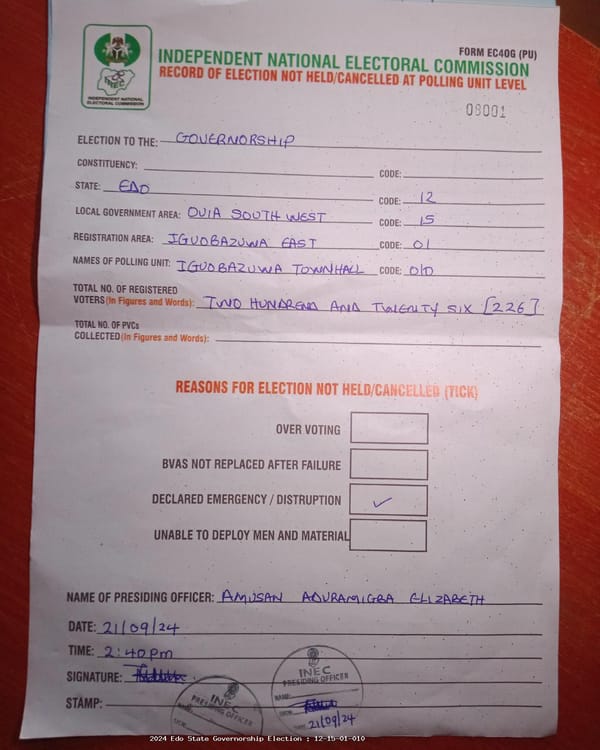 FORM EC40G (PU)
INDEPENDENT NATIONAL ELECTORAL COMMISSION
RECORD OF ELECTION NOT HELD/CANCELLED AT POLLING UNIT LEVEL
INEC
INDEPENDENT NATIONAL
ELECTORAL COMMISSION
08001
ELECTION TO THE: GOVERNORSHIP
CONSTITUENCY: CODE:
STATE: EDO CODE: 12
LOCAL GOVERNMENT AREA: OVIA SOUTH WEST CODE: 15
REGISTRATION AREA: IGUOBAZUWA EAST CODE: 01
NAMES OF POLLING UNIT: IGUOBAZUWA TOWNHALL CODE: 010
TOTAL NO. OF REGISTERED
VOTERS (In Figures and Words): TWO HUNDREND AND TWENTY SIX [226]
TOTAL NO. OF PVCs
COLLECTED (In Figures and Words):
REASONS FOR ELECTION NOT HELD/CANCELLED (TICK)
OVER VOTING
BVAS NOT REPLACED AFTER FAILURE
DECLARED EMERGENCY / DISTRUPTION ✓
UNABLE TO DEPLOY MEN AND MATERIAL
NAME OF PRESIDING OFFICER: AMUSAN ADURAMIGBA ELIZABETH
DATE: 21/09/24
TIME: 2:40pm
SIGNATURE:
STAMP:
INEC
PRESIDING OFFICER
INEC
PRESIDING OFFICER
NAME:
SIGN:
21/09/24
2024 Edo State Governorship Election : 12-15-01-010